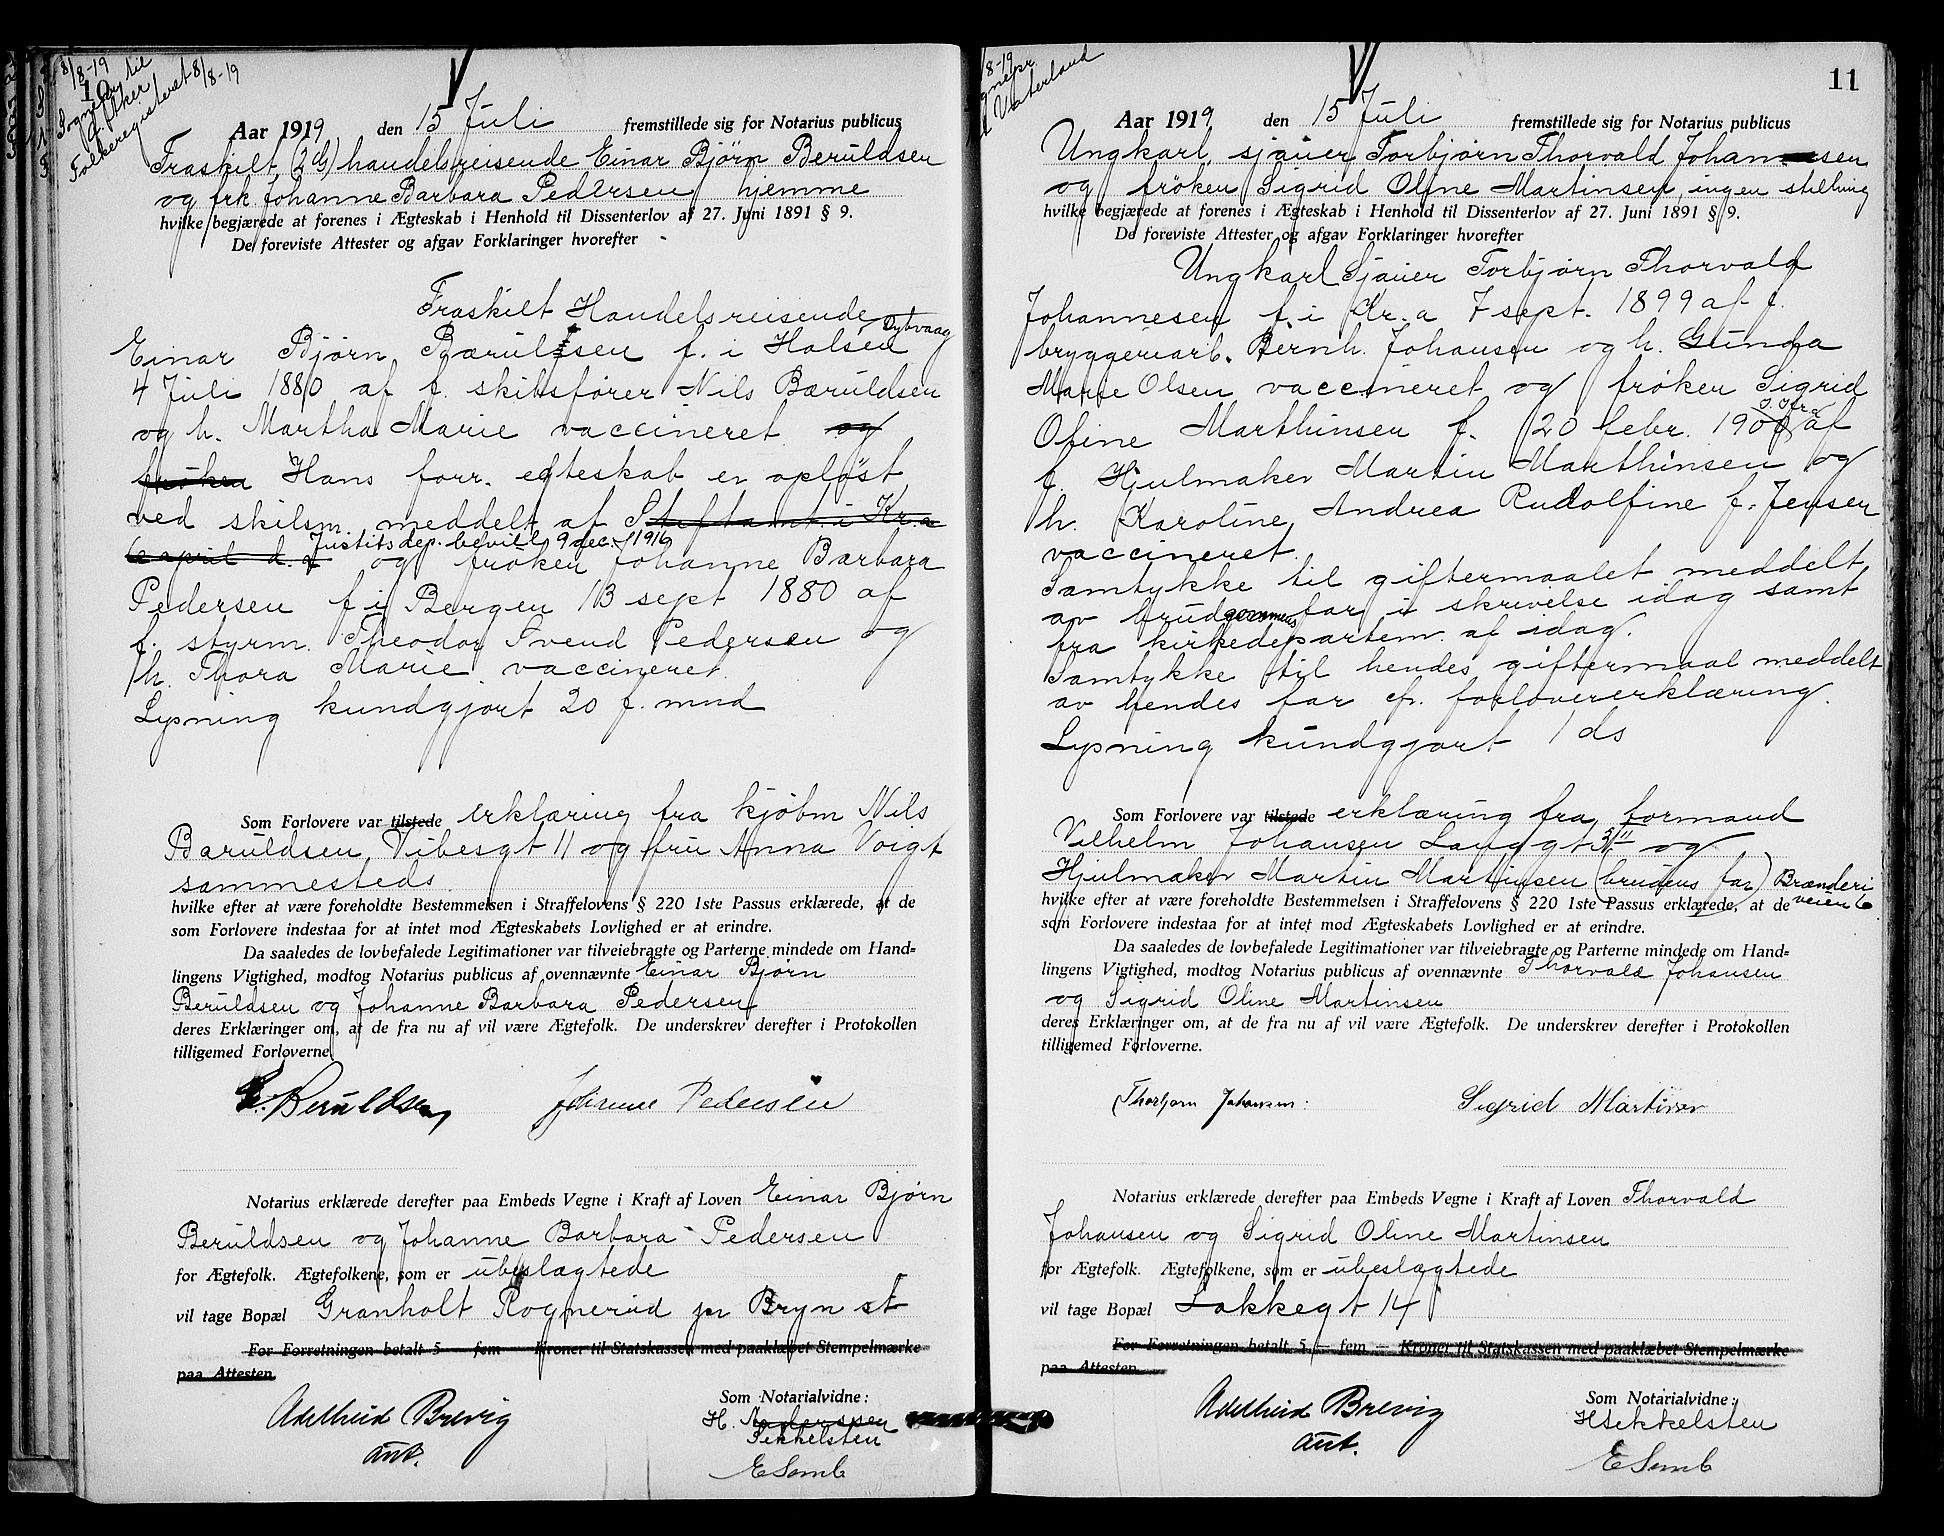 8/8-19
Sognepr. til
V. Aker
Folkeregisteret 8/8-19
Aar 1919 den 15 Juli fremstillede sig for Notarius publicus
Fraskilt, handelsreisende Einar Bjørn Beruldsen
og frk. Johanne Barbara Pedersen hjemme
hvilke begjærede at forenes i Ægteskab i Henhold til Dissenterlov af 27. Juni 1891 § 9.
De foreviste Attester og afgav Forklaringer hvorefter
Fraskilt Handelsreisende
Dybvaag
Einar Bjørn Bæruldsen f. i Halsen
4 Juli 1880 af f. skibsfører Nils Bæruldsen
og h. Martha Marie vaccineret og
frøken Hans forr. egteskab er opløst
ved skilsm. meddelt af Stiftamt i Kr.a
Justitsdep. bevill. 9 dec. 1916
6 april d. a og frøken Johanne Barbara
Pedersen f i Bergen 13 sept 1880 af
f. styrm. Theodor Svend Pedersen og
h. Thora Marie. vaccineret.
Lysning kundgjort 20 f. mnd
Som Forlovere var tilstede erklæring fra kjøbm Nils
Bæruldsen, Vibesgt 11 og fru Anna Voigt
sammesteds.
hvilke efter at være foreholdte Bestemmelsen i Straffelovens § 220 1ste Passus erklærede, at de
som Forlovere indestaa for at intet mod Ægteskabets Lovlighed er at erindre.
Da saaledes de lovbefalede Legitimationer var tilveiebragte og Parterne mindede om Hand-
lingens Vigtighed, modtog Notarius publicus af ovennævnte Einar Bjørn
Beruldsen og Johanne Barbara Pedersen
deres Erklæringer om, at de fra nu af vil være Ægtefolk. De underskrev derefter i Protokollen
tilligemed Forloverne.
E. Beruldsen Johanne Pedersen
Notarius erklærede derefter paa Embeds Vegne i Kraft af Loven Einar Bjørn
Beruldsen og Johanne Barbara Pedersen
for Ægtefolk. Ægtefolkene, som er ubeslægtede
vil tage Bopæl Granholt Rognerud pr Bryn st
For Forretningen betalt 5 — fem — Kroner til Statskassen med paaklæbet Stempelmærke
paa Attesten.
Som Notarialvidne:
Adelheid Brevig H.
aut. Sekkelsten
E Semb
8-19
Vaterland
11
Aar 1919 den 15 Juli fremstillede sig for Notarius publicus
Ungkarl, sjauer Torbjørn Thorvald Johansen
og frøken Sigrid Oline Martinsen, ingen stilling
hvilke begjærede at forenes i Ægteskab i Henhold til Dissenterlov af 27. Juni 1891 § 9.
De foreviste Attester og afgav Forklaringer hvorefter
Ungkarl Sjauer Torbjørn Thorvald
Johannesen f. i Kr.a 7 sept. 1899 af f.
bryggeriarb. Bernh. Johansen og h. Gunda
Marie Olsen vaccineret og frøken Sigrid
Oline Marthinsen f. 20 febr. 1900 af
f. Hjulmaker Martin Marthinsen og
h. Karoline Andrea Rudolfine f. Jensen
vaccineret.
Samtykke til giftermaalet meddelt
av brudgommens far i skrivelse idag samt
fra kirkedepartem. af idag.
Samtykke til hendes giftermaal meddelt
av hendes far cfr. forlovererklæring.
Lysning kundgjort 1 ds
Som Forlovere var tilstede erklæring fra formand
Vilhelm Johansen Langgt og
Hjulmaker Martin Martinsen (brudens far) Brænderi
veien 6
hvilke efter at være foreholdte Bestemmelsen i Straffelovens § 220 1ste Passus erklærede, at de
som Forlovere indestaa for at intet mod Ægteskabets Lovlighed er at erindre.
Da saaledes de lovbefalede Legitimationer var tilveiebragte og Parterne mindede om Hand-
lingens Vigtighed, modtog Notarius publicus af ovennævnte Thorvald Johansen
og Sigrid Oline Martinsen
deres Erklæringer om, at de fra nu af vil være Ægtefolk. De underskrev derefter i Protokollen
tilligemed Forloverne.
Thorbjørn Johansen: Sigrid Martinsen
Notarius erklærede derefter paa Embeds Vegne i Kraft af Loven Thorvald
Johansen og Sigrid Oline Martinsen
for Ægtefolk. Ægtefolkene, som er ubeslægtede
vil tage Bopæl Lakkegt 14
For Forretningen betalt 5 — fem — Kroner til Statskassen med paaklæbet Stempelmærke
paa Attesten.
Som Notarialvidne:
Adelheid Brevig HSekkelsten
aut.
E Semb